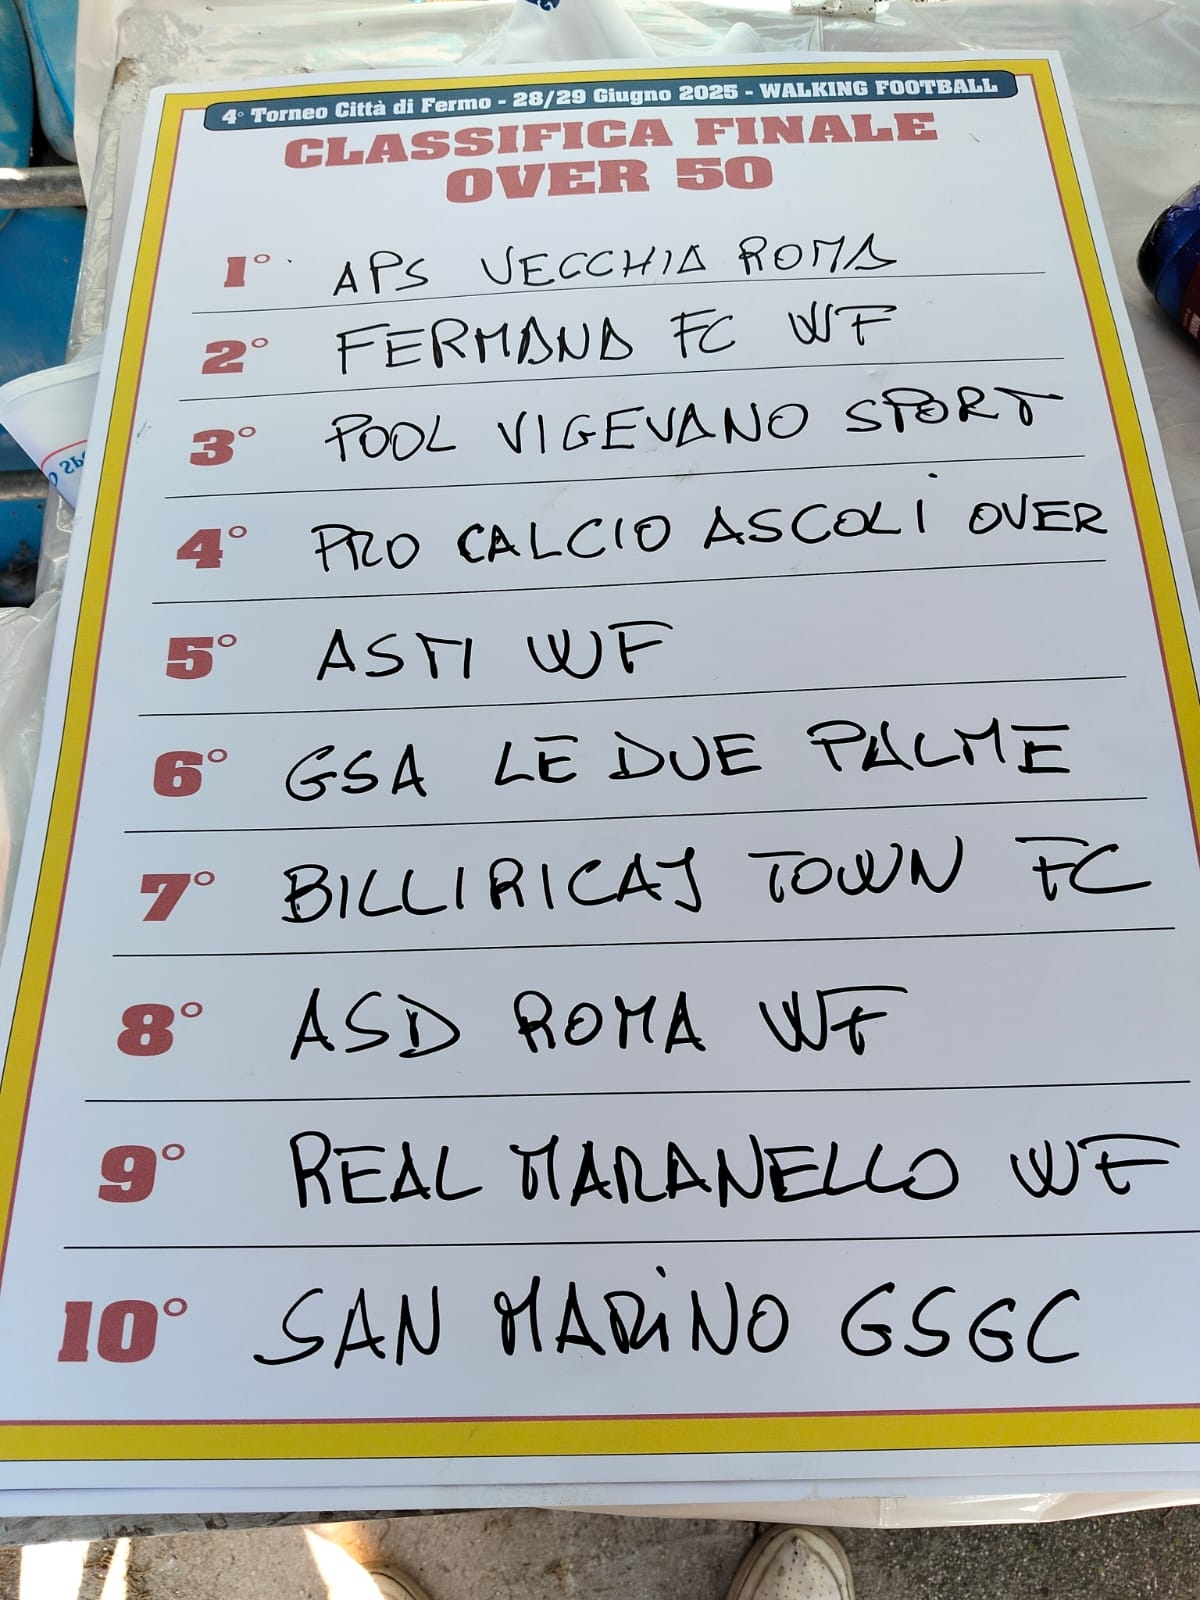 4° Torneo Città di Fermo - 28/29 Giugno 2025 - WALKING FOOTBALL
CLASSIFICA FINALE
OVER 50
1° APS VECCHIA ROMA
2° FERMANA FC WF
3° POOL VIGEVANO SPORT
4° PRO CALCIO ASCOLI OVER
5° ASTI WF
6° GSA LE DUE PALME
7° BILLIRICAJ TOWN FC
8° ASD ROMA WF
9° REAL MARANELLO WF
10° SAN MARiNO GSGC